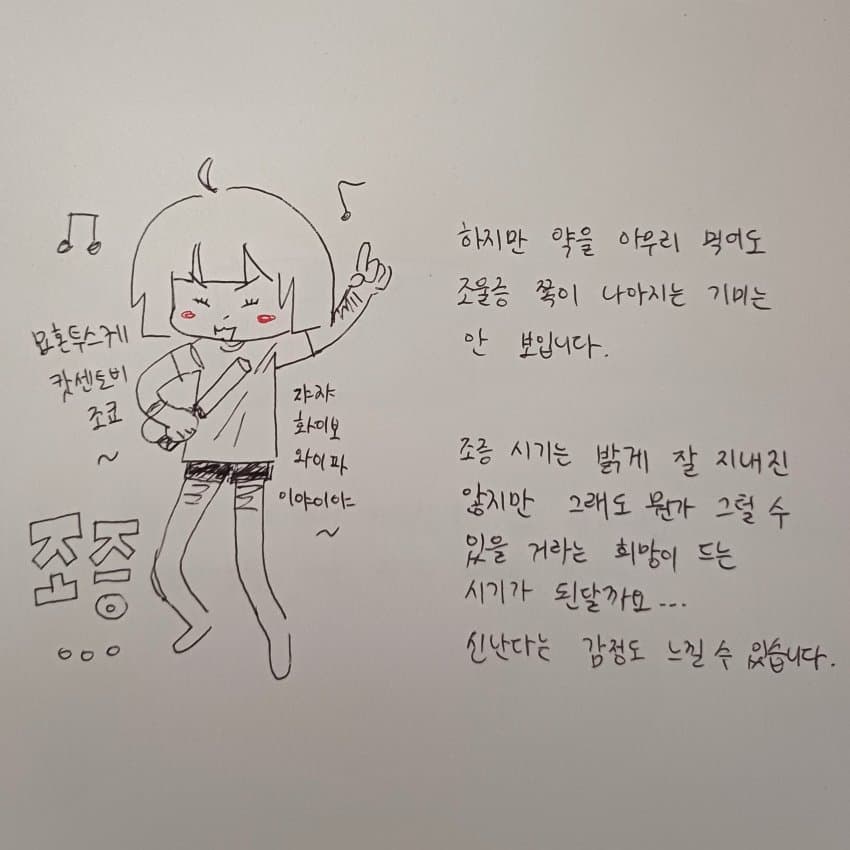 묘혼투스케
캇센토비
조쿄
~
쟈쟈
화이보
와이파
이야이야
~
...
하지만 약을 아무리 먹여도
조울증 쪽이 나아지는 기미는
안 보입니다.
조증 시기는 밝게 잘 지내진
않지만 그래도 뭔가 그럴 수
있을 거라는 희망이 드는
시기가 된달까요...
신난다는 감정도 느낄 수 있습니다.